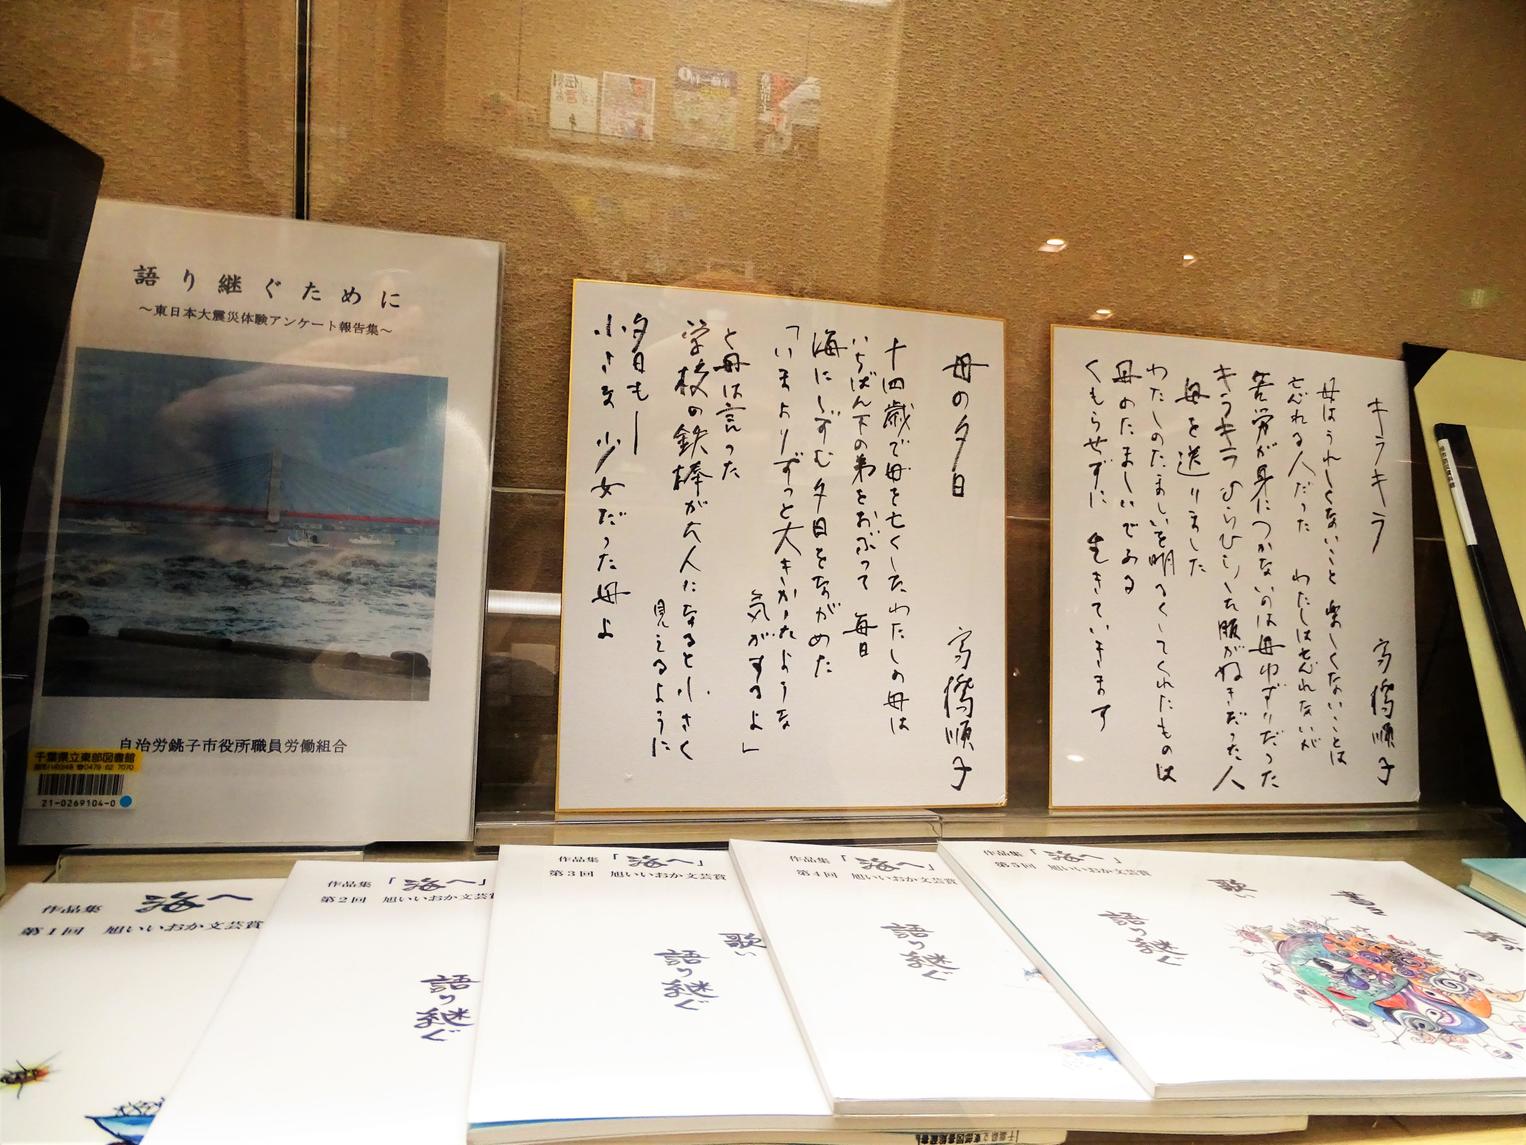 語り継ぐために
～東日本大震災体験アンケート報告集～
自治労銚子市役所職員労働組合
千葉県立東部図書館
21-0269104-0
母の夕日
高橋順子
十四歳で母を亡くしたわたしの母は
いちばん下の弟をおぶって 毎日
海にしずむ夕日をながめた
「いまよりずっと大きかったような
気がするよ」
と母は言った
学校の鉄棒が大人になると小さく
見えるように
夕日も―
小さな少女だった母よ
キラキラ
高橋順子
母はうれしくないこと 楽しくないことは
忘れる人だった わたしは忘れないが
苦労が身につかないのは母ゆずりだった
キラキラ ひらひらした服がぬきだった人
母を送りました
わたしのたましいを明るくしてくれたものは
母のたましいである
くもらせずに 生きていきます
作品集 海へ
第1回 旭いいおか文芸賞
作品集「海へ」
第2回 旭いいおか文芸賞
語り継ぐ
作品集「海へ」
第3回 旭いいおか文芸賞
歌い
語り継ぐ
作品集「海へ」
第4回 旭いいおか文芸賞
語り継ぐ
作品集「海へ」
第5回 旭いいおか文芸賞
歌い
語り継ぐ